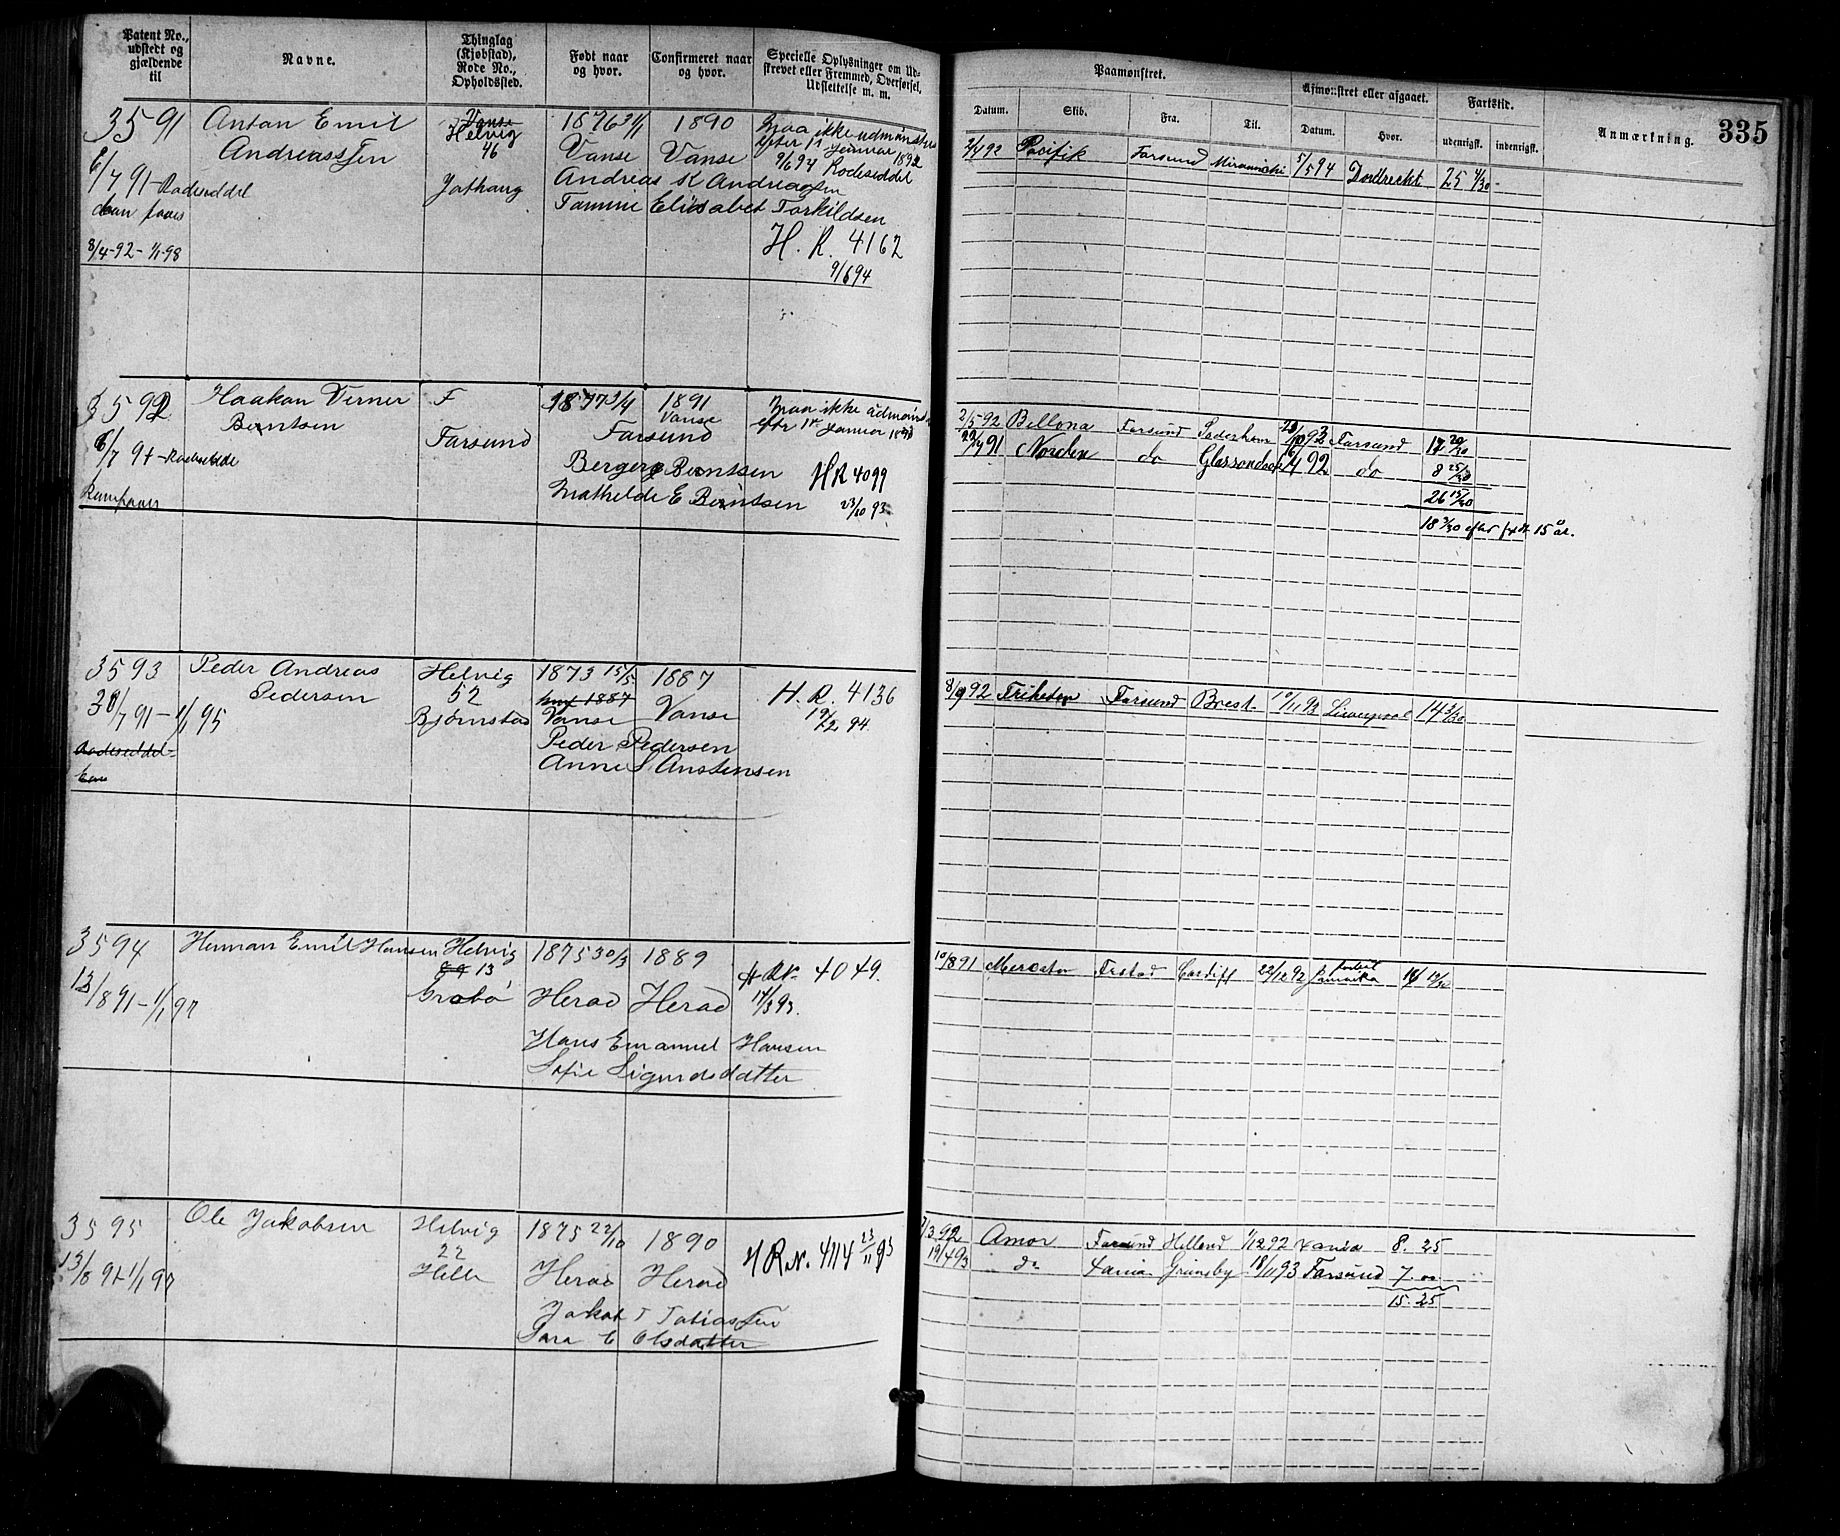 Patent No., udstedt og gjældende til
Navne.
Thinglag (Kjøbstad), Rode No., Opholdssted.
Født naar og hvor.
Confirmeret naar og hvor.
Specielle Oplysninger om Udskrevet eller Fremmed, Overførsel, Udslettelse m. m.
Paamønstret.
Afmønstret eller afgaaet.
Fartstid.
Anmærkning.
335
Datum.
Skib.
Fra.
Til.
Datum.
Hvor.
udenrigst.
indenrigst.
3591
Anton Emil
Andreassen
6/7 91 - Rodeseddel
8/4-92 - 1/1-98
Vanse
Helvig
46
Jøthaug
1876 21/1
Vanse
1890
Vanse
Maa ikke udmønstres
efter 1st Januar 1892
9/6 94 Rodeseddel
Andreas K Andreassen
Tomine Elisabet Torkildsen
H. R. 4162
9/6 94
Pacifik Farsund Miramichi 5/5 94 Dordrecht 25 4/30
3592
Haakon Verner
Berntsen
6/7 91 - Rodeseddel
F
Farsund
1877 3/4
Farsund
1891
Vanse
Maa ikke udmønstres
efter 1st Januar 1893
Berntsen
Mathilde E Berntsen
HR 4099
23/10 93
2/5 92 Bellona Farsund Farsund
Norden do do 8 25/30
26 15/30
18 3/30 efter fyldt 15 år.
3593
Peder Andreas
Pedersen
30/7 91 - 1/1 95
Rodeseddel
Helvig
52
Bjørnstad
1873 15/5
Vanse
1887
Vanse
Peder Pedersen
Anne S Anstensen
H. R. 4136
19/2 94.
8/9 92 Friheden Farsund Brest 10/11 93 Liverpool 14 3/30
3594
Herman Emil Hansen
13/8 91 - 1/1 97
Helvig
13
1875 30/3
Herad
1889
Herad
Hans Emanuel Hansen
Sofie Sigurdsdatter
H R N. 4049.
17/3 93.
10/8 91 Mercator Cardiff 22/12 92 Jamaika
3595
Ole Jakobsen
13/8 91 - 1/1 97
Helvig
22
Helle
1875 22/10
Herad
1890
Herad
Jakob T Tobiassen
Sara E Olsdatter
H R N. 4114 23/11 93
7/3 92 Amor Farsund Holland 1/12 92 8. 25
19/4 93 do Grimsby 18/11 93 Farsund 7. 00
15. 25